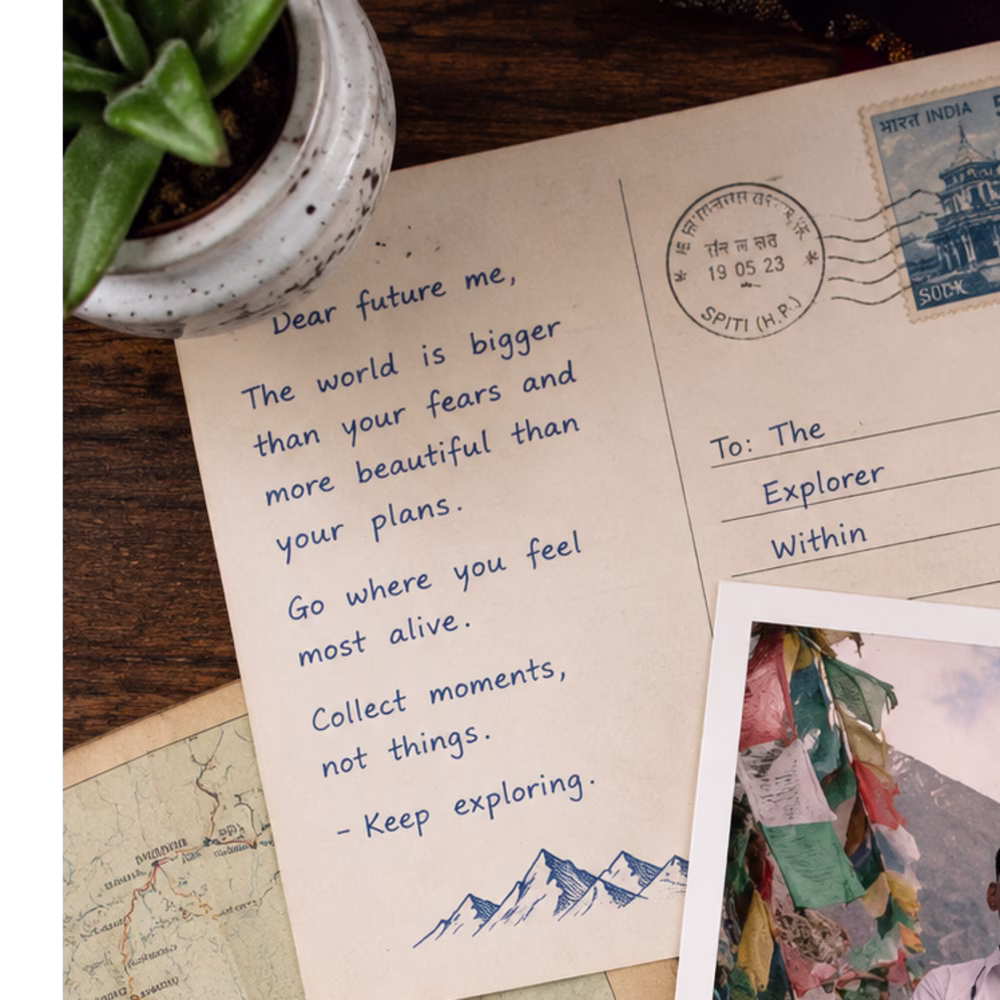 Dear future me,
The world is bigger
than your fears and
more beautiful than
your plans.
Go where you feel
most alive.
Collect moments,
not things.
- Keep exploring.
19 05 23
SPITI (H.P.)
भारत INDIA
To: The
Explorer
Within